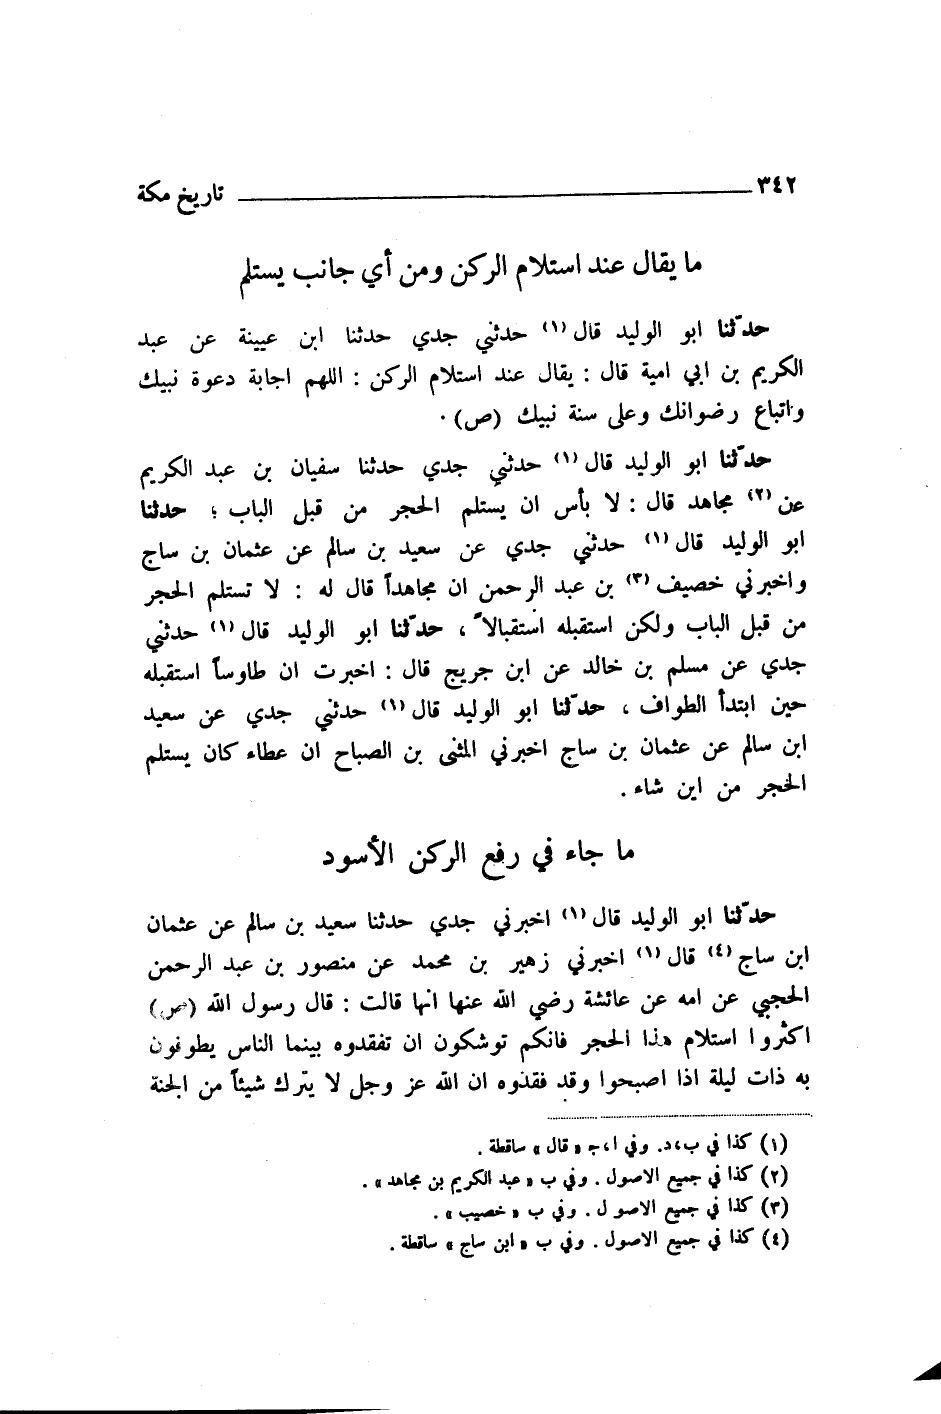 ٣٤٢ تاريخ مكة
ما يقال عند استلام الركن ومن أي جانب يستلم
حدّثنا ابو الوليد قال (١) حدثني جدي حدثنا ابن عيينة عن عبد
الكريم بن ابي امية قال : يقال عند استلام الركن : اللهم اجابة دعوة نبيك
واتباع رضوانك وعلى سنة نبيك (ص) .
حدّثنا ابو الوليد قال (١) حدثني جدي حدثنا سفيان بن عبد الكريم
عن (٢) مجاهد قال : لا بأس ان يستلم الحجر من قبل الباب ؛ حدثنا
ابو الوليد قال (١) حدثني جدي عن سعيد بن سالم عن عثمان بن ساج
واخبرني خصيف (٣) بن عبد الرحمن ان مجاهداً قال له : لا تستلم الحجر
من قبل الباب ولكن استقبله استقبالاً ، حدّثنا ابو الوليد قال (١) حدثني
جدي عن مسلم بن خالد عن ابن جريج قال : اخبرت ان طاوساً استقبله
حين ابتدأ الطواف ، حدّثنا ابو الوليد قال (١) حدثني جدي عن سعيد
ابن سالم عن عثمان بن ساج اخبرني المثنى بن الصباح ان عطاء كان يستلم
الحجر من اين شاء .
ما جاء في رفع الركن الأسود
حدّثنا ابو الوليد قال (١) اخبرني جدي حدثنا سعيد بن سالم عن عثمان
ابن ساج (٤) قال (١) اخبرني زهير بن محمد عن منصور بن عبد الرحمن
الحجبي عن امه عن عائشة رضي الله عنها انها قالت : قال رسول الله (ص)
اكثروا استلام هذا الحجر فانكم توشكون ان تفقدوه بينما الناس يطوفون
به ذات ليلة اذا اصبحوا وقد فقدوه ان الله عز وجل لا يترك شيئاً من الجنة
(١) كذا في ب،د. وفي ا،ج « قال » ساقطة .
(٢) كذا في جميع الاصول . وفي ب « عبد الكريم بن مجاهد » .
(٣) كذا في جميع الاصول . وفي ب « خصيب » .
(٤) كذا في جميع الاصول . وفي ب « ابن ساج » ساقطة .